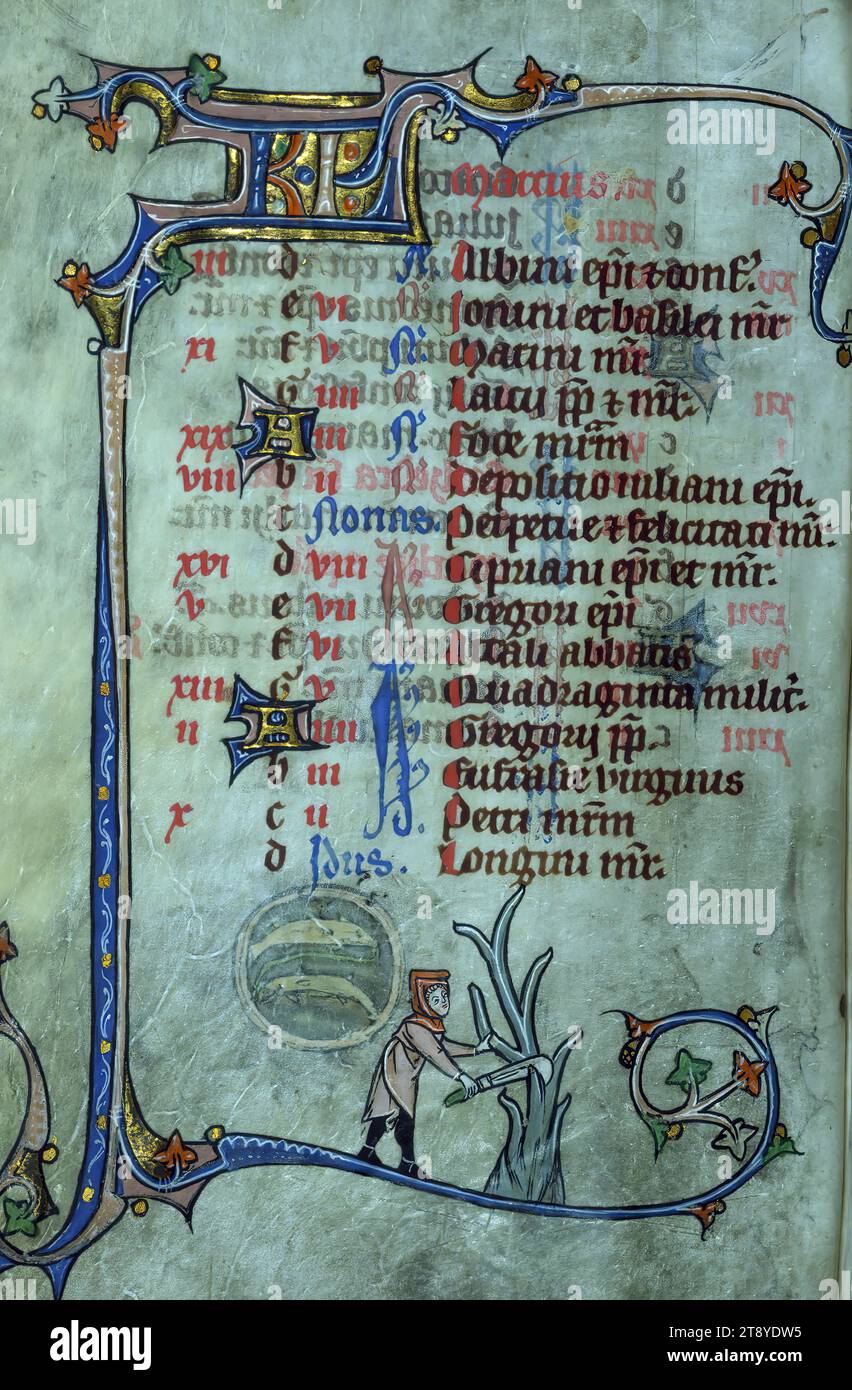 KL Marcius
iii d N Albini epi & conf.
e vi N Ionini et basilei mr
xi f v N Marini mr.
g iiii N Lucii pp & mr.
xix A iii N Foce mrm
viii b ii N Depositio iuliani epi.
c Nonas. Perpetue & felicitati mr.
xvi d viii Cipriani epi et mr.
v e vii Gregori epi
f vi Attali abbatis
xiii G v Quadraginta milit.
ii A iiii Gregorij pp.
b iii Eufrasie virginis
x c ii Petri mrm
d Idus. Longini mr.
alamy
Image ID: 2T8YDW5
www.alamy.com